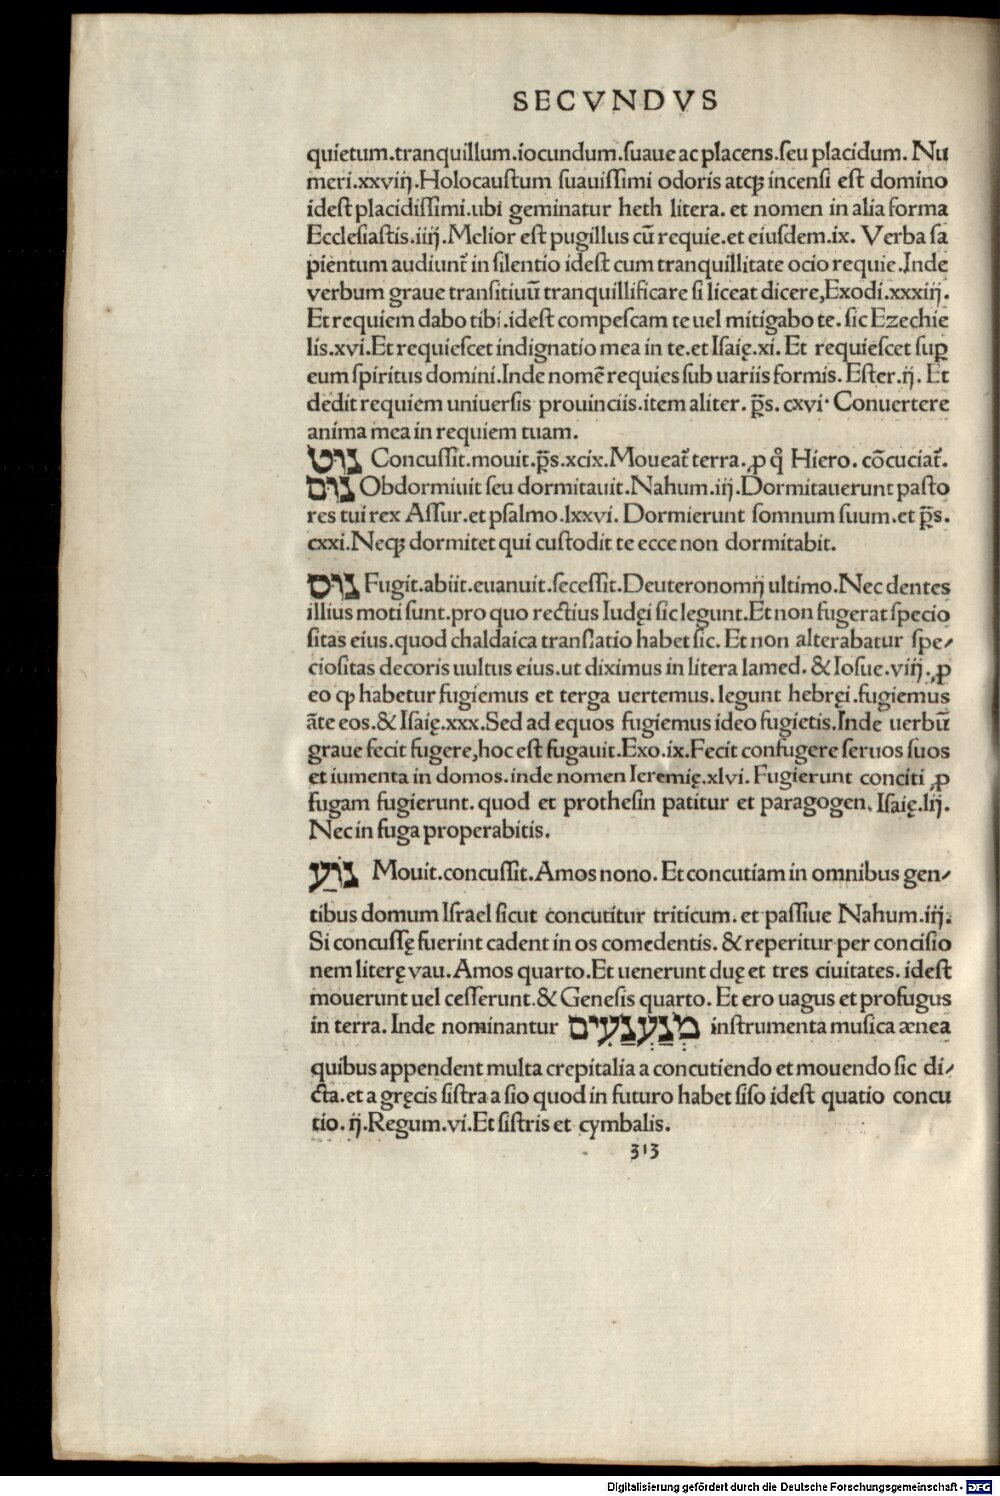 SECVNDVS
quietum.tranquillum.iocundum.ſuaue ac placens.ſeu placidum. Nu
meri.xxviij.Holocauſtum ſuauiſſimi odoris atqꝫ incenſi eſt domino
ideſt placidiſſimi.ubi geminatur heth litera. et nomen in alia forma
Eccleſiaſtis.iiij.Melior eſt pugillus cū requie.et eiuſdem.ix. Verba ſa
pientum audiunt̃ in ſilentio ideſt cum tranquillitate ocio requie.Inde
verbum graue tranſitiuū tranquillificare ſi liceat dicere,Exodi.xxxiij.
Et requiem dabo tibi.ideſt compeſcam te uel mitigabo te. ſic Ezechie
lis.xvi.Et requieſcet indignatio mea in te.et Iſaię.xi. Et requieſcet ſuꝑ
eum ſpiritus domini.Inde nomē requies ſub uariis formis. Eſter.ij. Et
dedit requiem uniuerſis prouinciis.item aliter. p̄s. cxvi· Conuertere
anima mea in requiem tuam.
נוּט Concuſſit.mouit.p̄s.xcix.Moueat̃ terra.ꝓ q̊ Hiero. cōcuciat̃.
נוּם Obdormiuit ſeu dormitauit.Nahum.iij.Dormitauerunt paſto
res tui rex Aſſur.et pſalmo.lxxvi. Dormierunt ſomnum ſuum.et p̄s.
cxxi.Neqꝫ dormitet qui cuſtodit te ecce non dormitabit.
נוּס Fugit.abiit.euanuit.ſeceſſit.Deuteronomij ultimo.Nec dentes
illius moti ſunt.pro quo rectius Iudęi ſic legunt.Et non fugerat ſpecio
ſitas eius.quod chaldaica tranſlatio habet ſic. Et non alterabatur ſpe⸗
cioſitas decoris uultus eius.ut diximus in litera lamed. & Ioſue.viij.ꝓ
eo ꝙ habetur fugiemus et terga uertemus.legunt hebręi.fugiemus
āte eos.& Iſaię.xxx.Sed ad equos fugiemus ideo fugietis.Inde uerbū
graue fecit fugere,hoc eſt fugauit.Exo.ix.Fecit confugere ſeruos ſuos
et iumenta in domos.inde nomen Ieremię.xlvi. Fugierunt conciti ꝓ
fugam fugierunt.quod et protheſin patitur et paragogen. Iſaię.lij.
Nec in fuga properabitis.
נוֹּעַ Mouit.concuſſit.Amos nono. Et concutiam in omnibus gen⸗
tibus domum Iſrael ſicut concutitur triticum. et paſſiue Nahum.iij.
Si concuſſę fuerint cadent in os comedentis. & reperitur per conciſio
nem literę vau.Amos quarto.Et uenerunt duę et tres ciuitates. ideſt
mouerunt uel ceſſerunt.& Geneſis quarto. Et ero uagus et profugus
in terra. Inde nominantur מְנַעְנַעִים inſtrumenta muſica ænea
quibus appendent multa crepitalia a concutiendo et mouendo ſic di⸗
cta.et a gręcis ſiſtra a ſio quod in futuro habet ſiſo ideſt quatio concu
tio. ij.Regum.vi.Et ſiſtris et cymbalis.
313
Digitalisierung gefördert durch die Deutsche Forschungsgemeinschaft - DFG